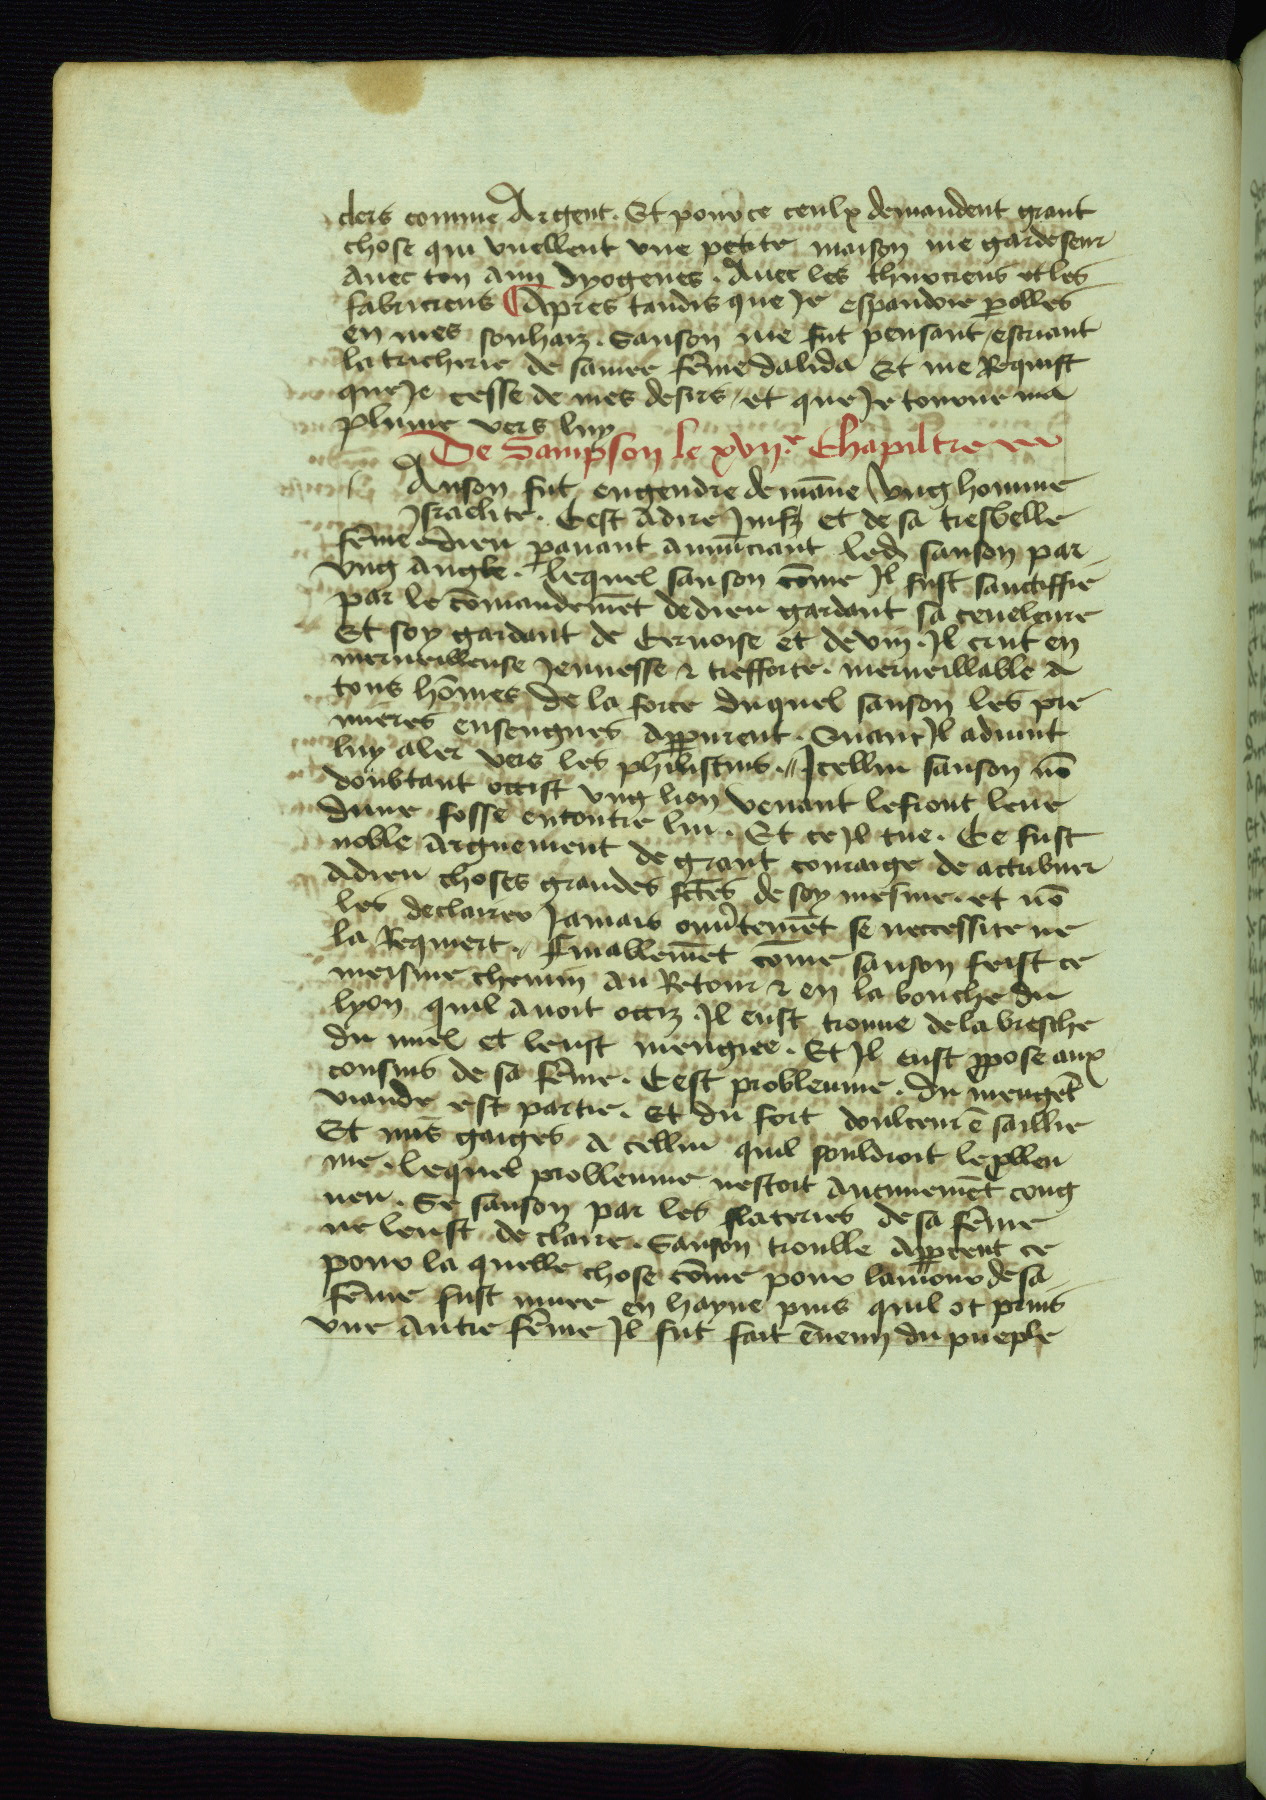 clers comme Argent. Et pour ce ceulx demandent grant
chose qui vuellent vne petite maison me gardeseur
Auec ton Amy dyogenes. Auec les thuociens et les
fabriciens ¶ Apres tandis que Je espandoie polles
en mes souhaiz. Sanson me fut pensant / escriant
la tricherie de samee fēme dalida Et me Requist
que Je cesse de mes desirs / et que Je tourne ma
plume vers luy
De Sampson le xvijᵉ Chapiltre
Anson fut engendre de māne Vng homme
Jsraelite. Cest Adire Juifz et de sa tresbelle
fēme dieu pauant annūciant led sanson par
vng Angle. Lequel sanson cōme Jl fust sanctiffie
par le cōmandemēt de dieu gardant sa ceueleure
Et soy gardant de Ceruoise et de vin. Jl crut en
merueilleuse Jennesse & tresforte. merueillable A
tous hōmes de la force duquel sanson les pre
mieres ensengnes Apparurent. Quant Jl aduint
luy aler vers les philistins. // Jcellui sanson nō
doubtant occist vng lion venant le front leue
dune fosse encontre lui. Et ce Jl tue. Ce fust
noble Arguement de grant couraige de actribuer
Adieu choses grandes fctes de soy mesme. et nō
les declairer Jamais ouūtemēt se neccessite ne
la Requiert. // Finablemēt cōme sanson feist ce
meisme chemin Au Retour & en la bouche du
lyon quil Auoit occiz. Jl eust trouue de la bresche
du miel et leust mengiee. Et Jl eust ppose aux
cousins de sa fēme. Cest probleume. du mengēt
viande est partie. Et du fort doulceur ē saillie
Et mis gaiges A cellui quil souldroit le pbleu
me. Lequel probleume nestoit Aucunemēt cong
neu. Se sanson par les flateries de sa fēme
ne leust de claire. Sanson trouble Apperceut ce
pour la quelle chose cōme pour lamour de sa
fēme fust muee en hayne puis quil ot prins
vne Autre fēme Jl fut fait ēnemy du pueple